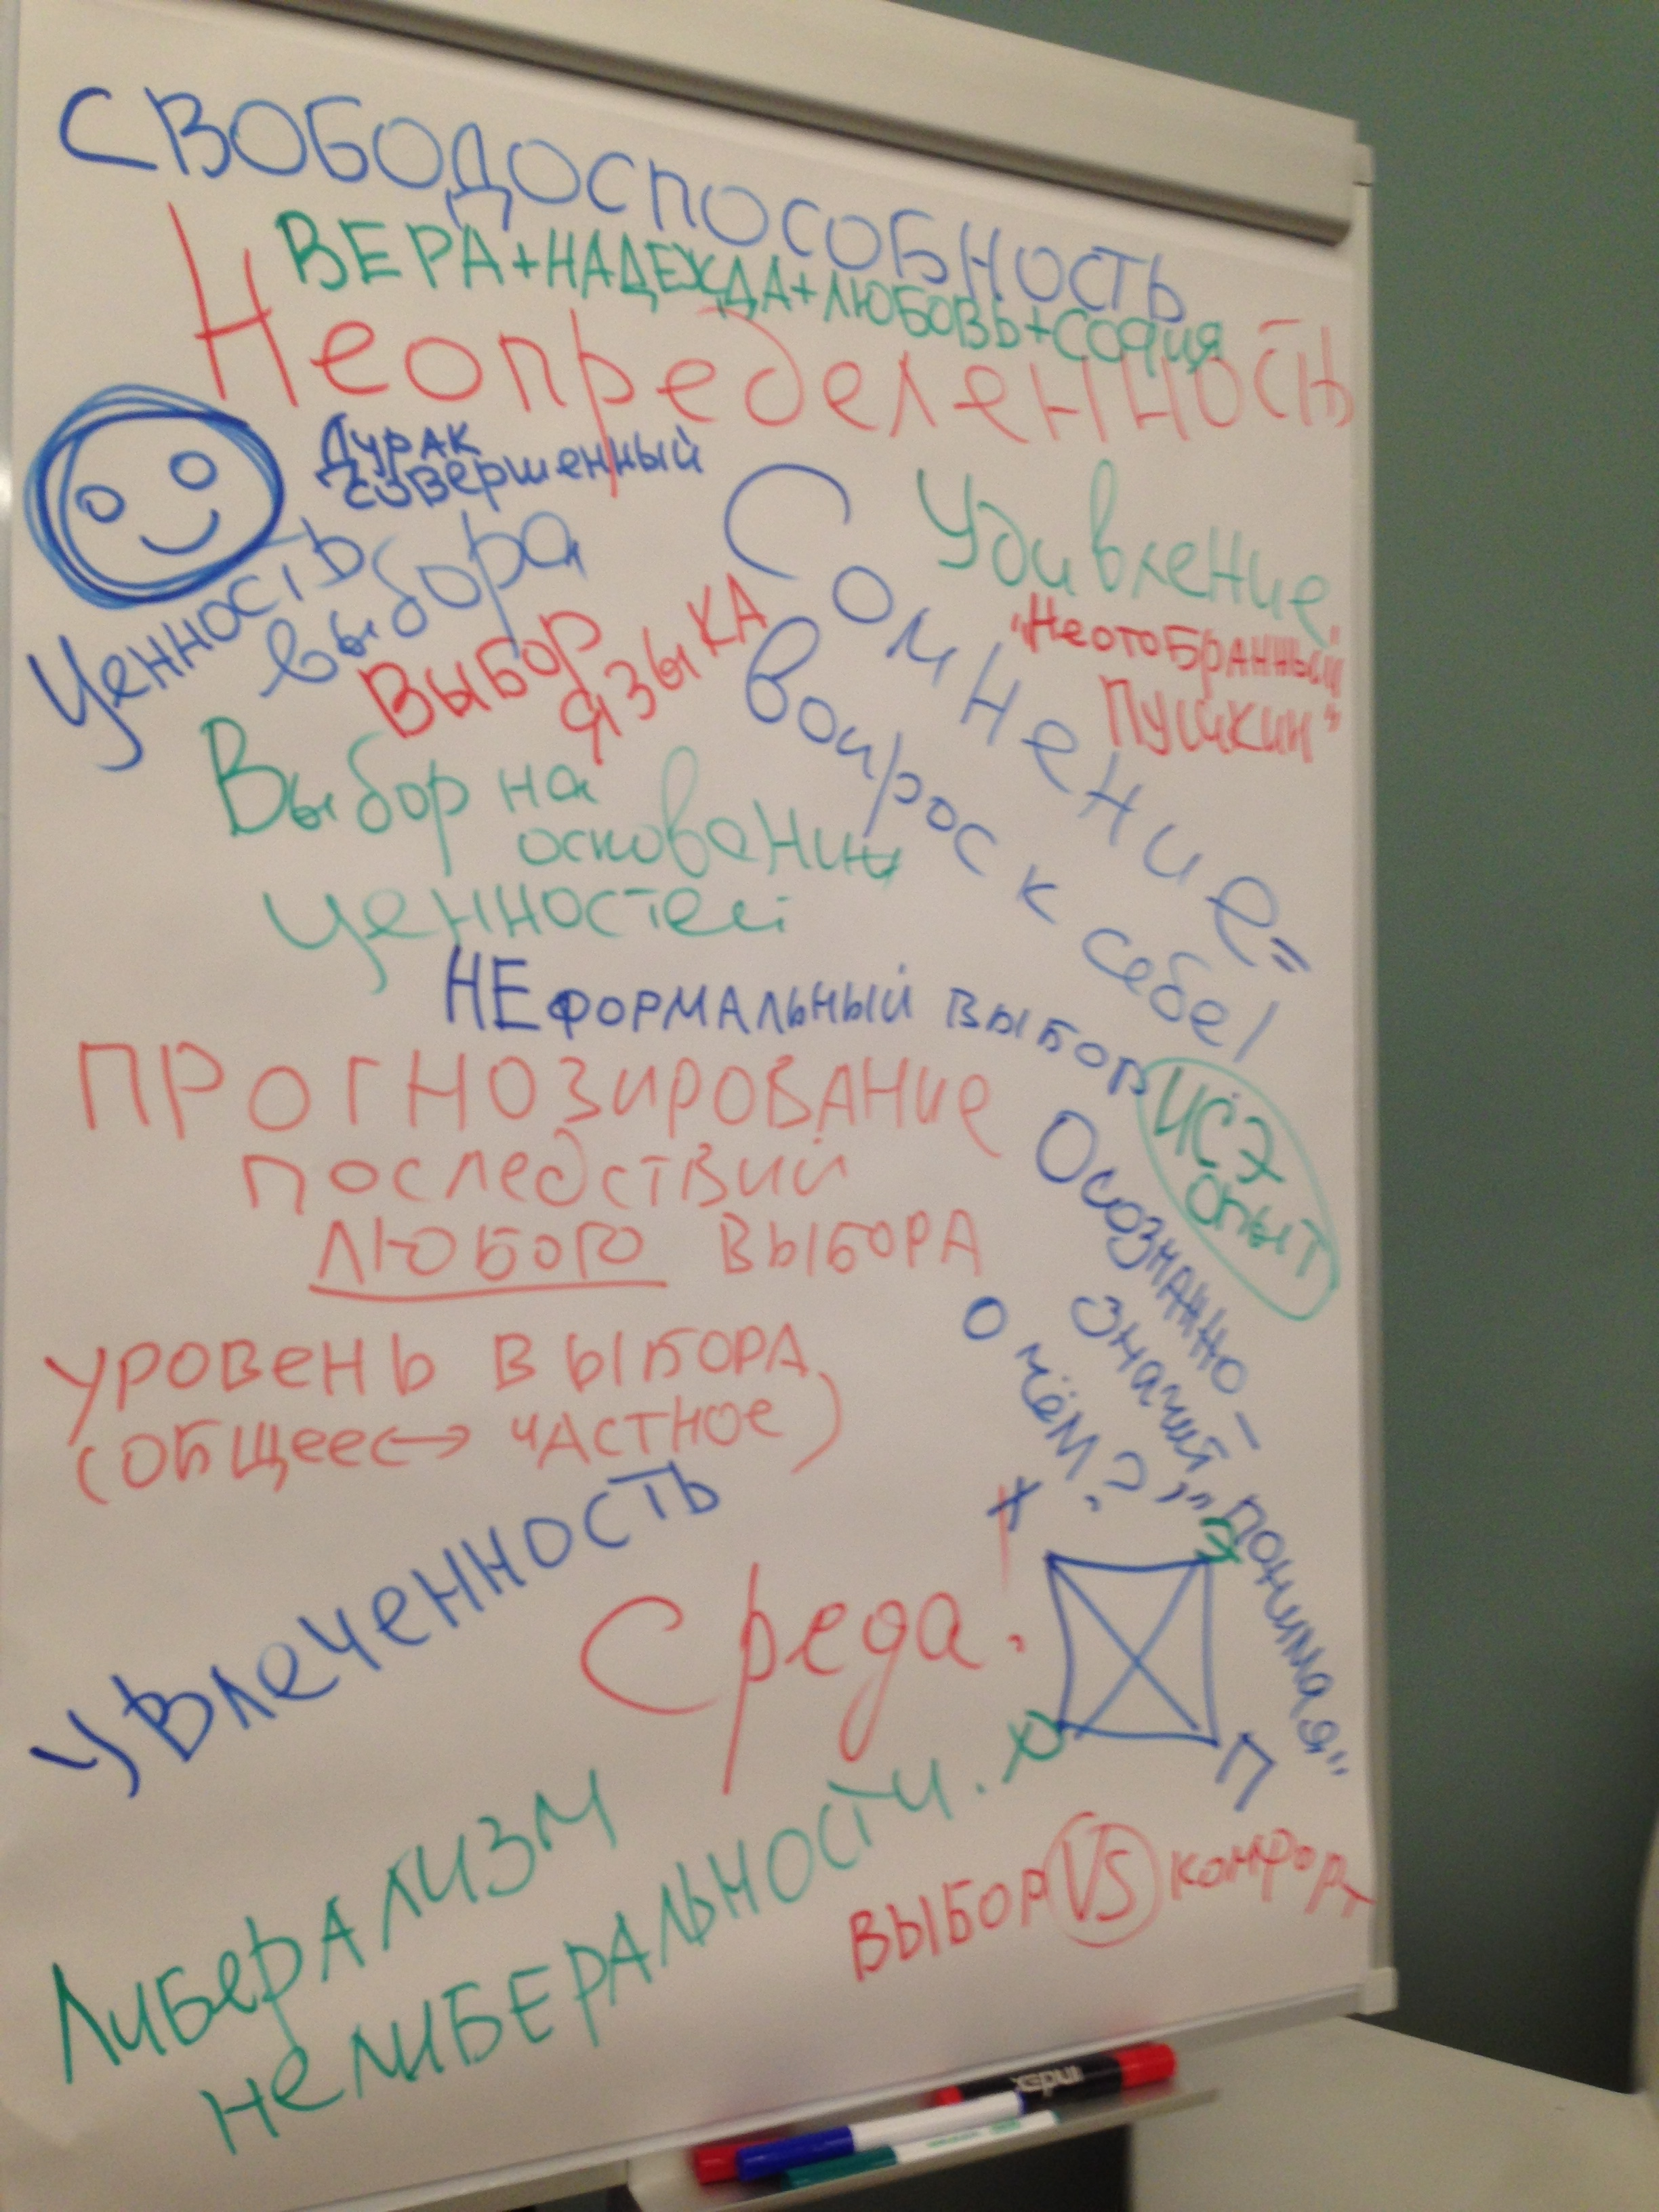 СВОБОДОСПОСОБНОСТЬ
ВЕРА+НАДЕЖДА+ЛЮБОВЬ+София
Неопределенность
Дурак
совершенный
Ценность
выбора
Удивление
"Неотобранный
Пушкин"
Сомнение=
вопрос к себе!
Выбор
языка
Выбор на
основании
ценностей
НЕформальный выбор
ИСЭ
опыт
Прогнозирование
последствий
любого выбора
Осознанно -
значит "понимая"
о чём?
Уровень выбора
(общее↔частное)
Увлеченность
Среда!
Х
Э
П
Либерализм
нелиберальности.
Выбор VS комфорт
index